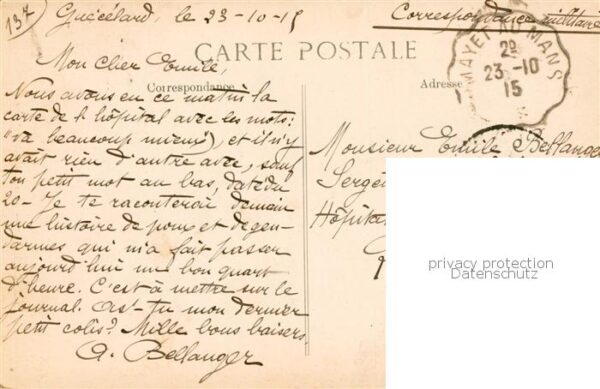 137
Guécélard, le 23-10-15
Correspondance militaire
CARTE POSTALE
Correspondance
Adresse
MAYET AU MANS
2º
23-10
15
Mon cher Emile,
Nous avons eu ce matin la
carte de l'hôpital avec les mots:
"va beaucoup mieux", et il n'y
avait rien d'autre avec, sauf
ton petit mot au bas, daté du
20- Je te raconterai demain
une histoire de poux et de gen-
darmes qui m'a fait passer
aujourd'hui un bon quart
d'heure. C'est à mettre sur le
journal. As-tu mon dernier
petit colis? Mille bons baisers
A. Bellanger
Monsieur Emile Bellanger
Serge
Hôpita
privacy protection
Datenschutz